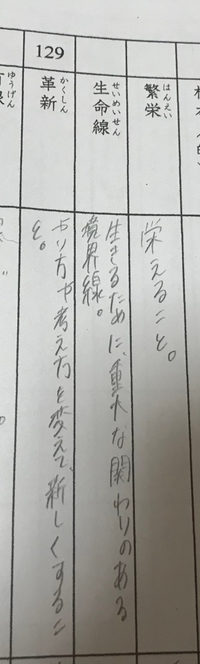 繁栄
はんえい
栄えること。
生命線
せいめいせん
生きるために、重大な関わりのある
境界線。
129
革新
かくしん
やり方や考え方を変えて、新しくするこ
と。
ゆうげん